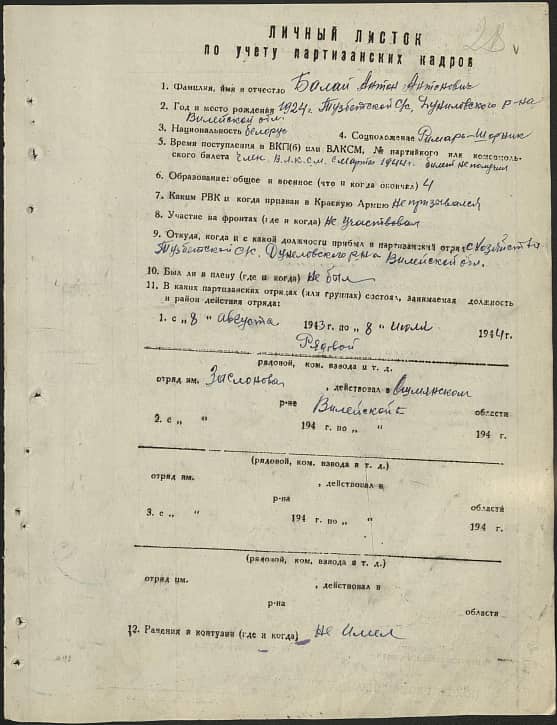 28
ЛИЧНЫЙ ЛИСТОК
по учету партизанских кадров
1. Фамилия, имя и отчество Балай Антон Антонович
2. Год и место рождения 1924 г. Тузбетской С/с, Дуниловского р-на
Вилейской обл.
3. Национальность белорус 4. Соцположение Римарь-Шорник
5. Время поступления в ВКП(б) или ВЛКСМ, № партийного или комсомоль-
ского билета Член В.Л.К.С.М. с марта 1944 г. билет не получил
6. Образование: общее и военное (что и когда окончил) 4
7. Каким РВК и когда призван в Красную Армию Не призывался
8. Участие на фронтах (где и когда) Не участвовал
9. Откуда, когда и с какой должности прибыл в партизанский отряд с хозяйства
Тузбетской С/с. Дуниловского р-на Вилейской обл.
10. Был ли в плену (где и когда) Не был
11. В каких партизанских отрядах (или группах) состоял, занимаемая должность
и район действия отряда:
1. с „ 8 " Августа 1943 г. по „ 8 " Июля 1944 г.
Рядовой
рядовой, ком. взвода и т. д.
отряд им. Заслонова, действовал в Ошмянском
р-не Вилейской области
2. с „ " 194 г. по „ " 194 г.
(рядовой, ком. взвода и т. д.)
отряд им. , действовал в
р-на области
3. с „ " 194 г. по „ " 194 г.
(рядовой, ком. взвода и т. д.)
отряд им. , действовал в
р-на
области
12. Ранения и контузии (где и когда) Не имел